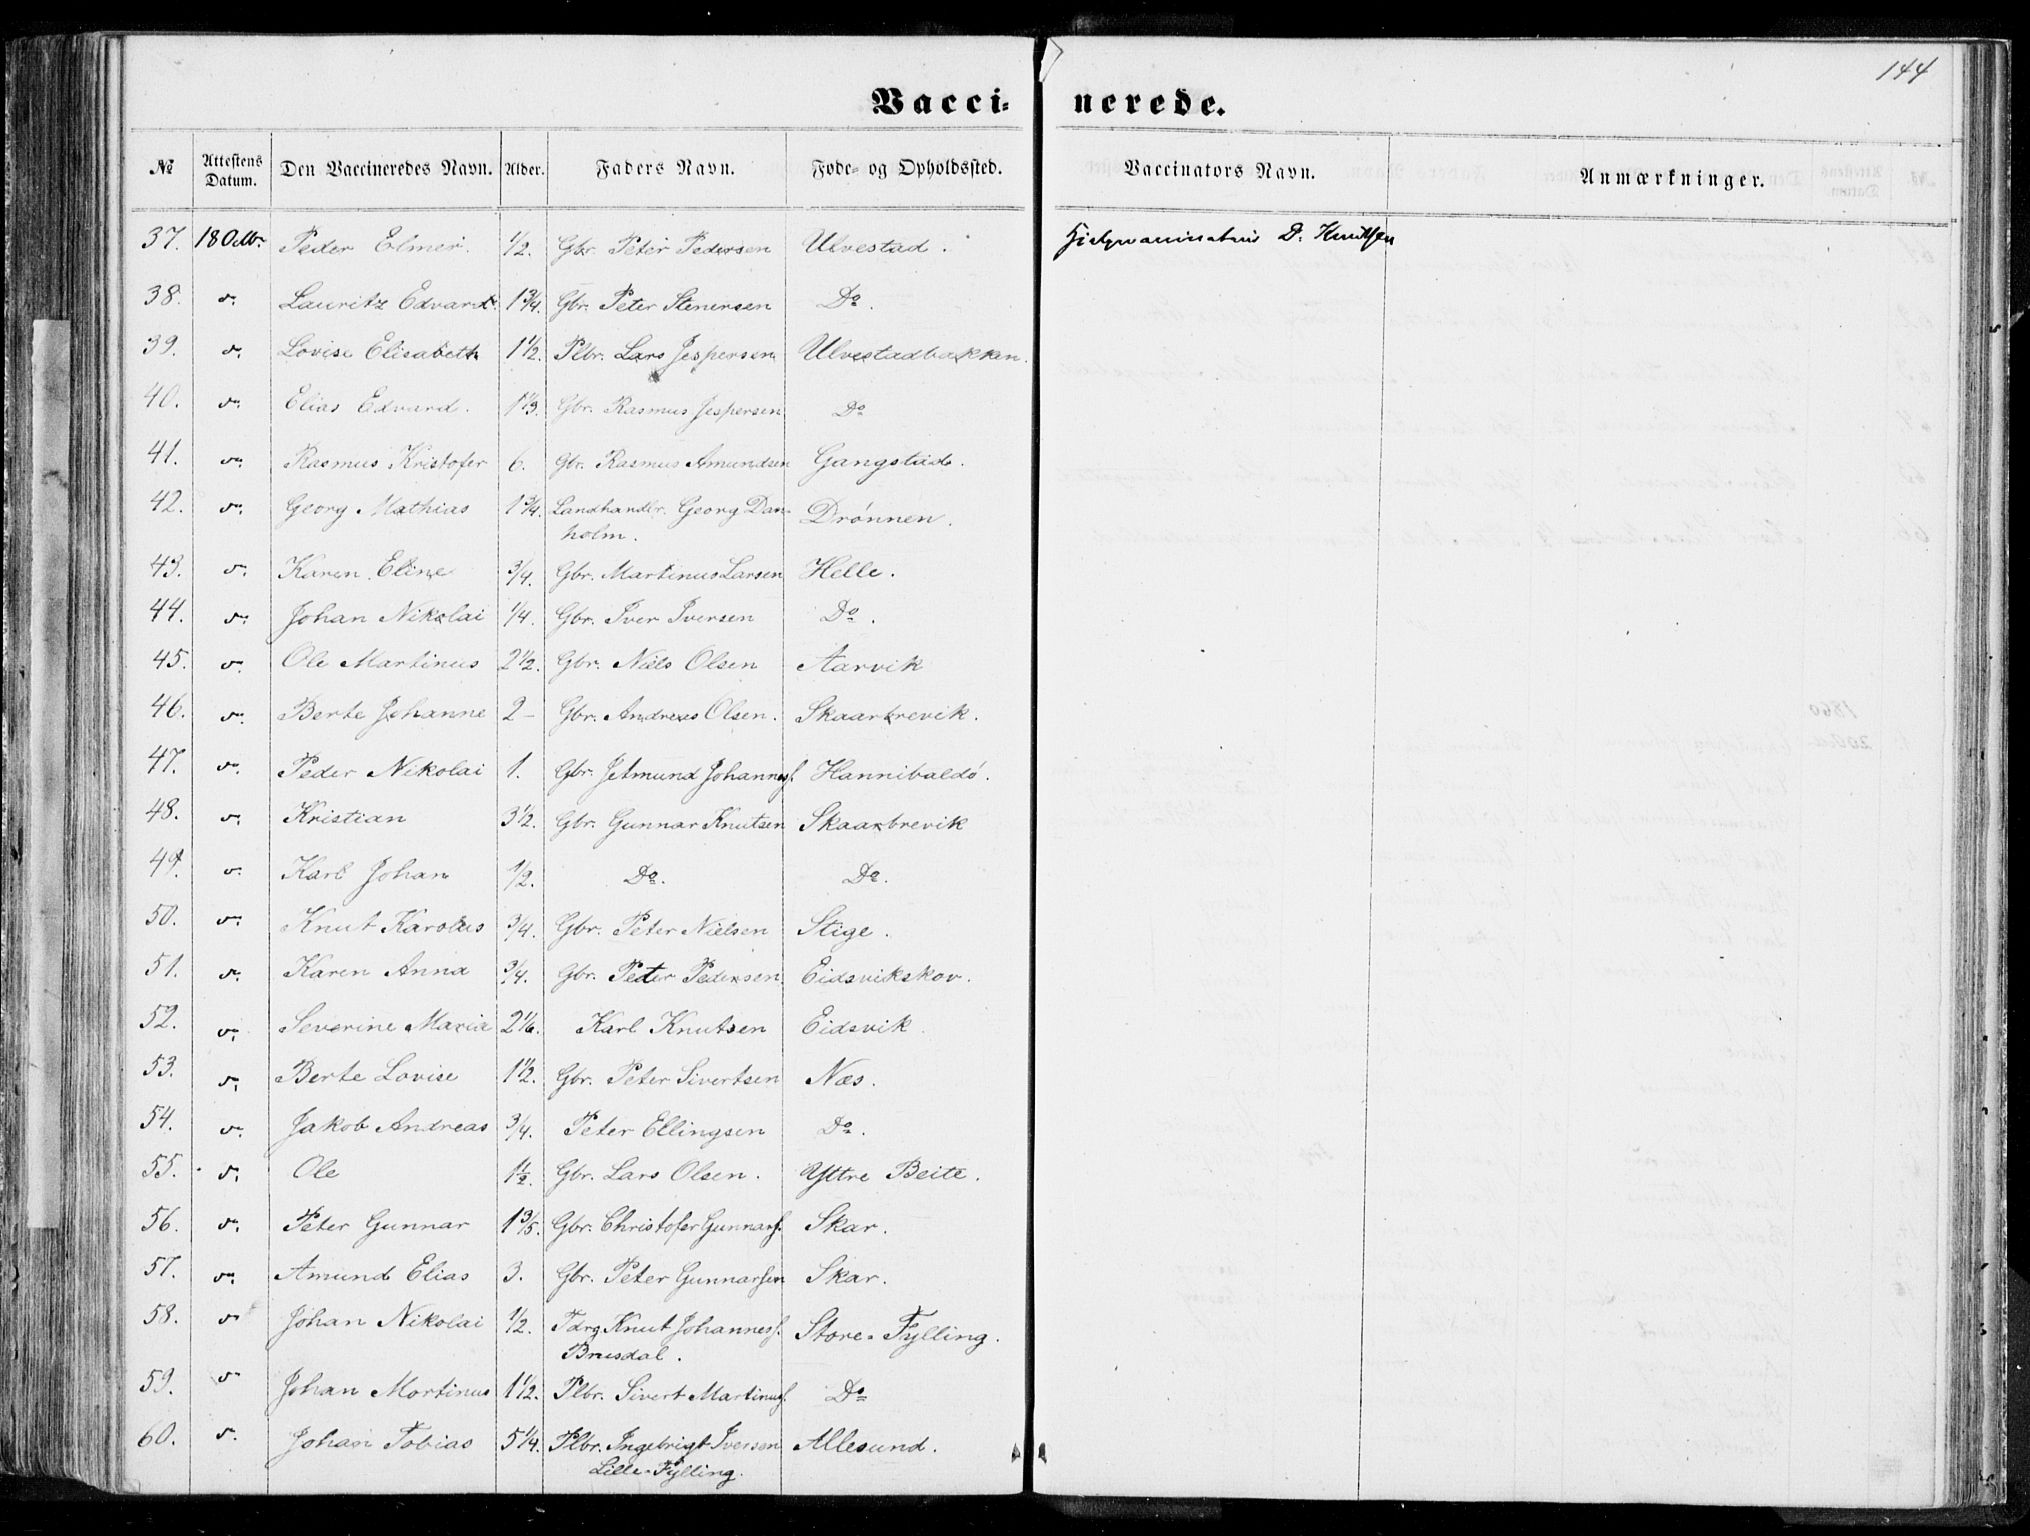 144
Vaccinerede.
№ Attestens Datum. Den Vaccineredes Navn. Alder. Faders Navn. Føde- og Opholdssted. Vaccinators Navn. Anmærkninger.
37. 18 Peder Elmer. 1/2. Gbr. Peter Pedersen Ulvestad. D. Knutsen
38. do. Lauritz Edvard. 1 3/4. Gbr. Peter Stenersen Do.
39. do. Lovise Elisabeth 1 1/2. Plbr. Lars Jespersen Ulvestadbakken.
40. do. Elias Edvard. 1 1/3. Gbr. Rasmus Jespersen Do
41. do. Rasmus Kristofer 6. Gbr. Rasmus Amundsen Gangstad.
42. do. Georg Mathias 1 3/4. Landhandlr. Georg Dan-
holm. Drønnen.
43. do. Karen Eline 3/4. Gbr. Martinus Larsen Helle.
44. do. Johan Nikolai 1/4. Gbr. Iver Iversen Do.
45. do. Ole Martinus 2 1/2. Gbr. Niels Olsen Aarvik
46. do. Berte Johanne 2 - Gbr. Andreas Olsen. Skaarbrevik.
47. do. Peder Nikolai 1. Gbr. Jetmund Johannesf. Hannibaldø.
48. do. Kristian 3 1/2. Gbr. Gunnar Knutsen Skaarbrevik
49. do. Karl Johan 1/2. Do. Do.
50. do. Knut Karolus 3/4. Gbr. Peter Nielsen Stige.
51. do. Karen Anna 3/4. Gbr. Peter Pedersen. Eidsvikskov.
52. do. Severine Maria 2 1/6. Karl Knutsen Eidsvik.
53. do. Berte Lovise 1 1/2. Gbr. Peter Sivertsen Næs.
54. do. Jakob Andreas 3/4. Peter Ellingsen Do.
55. do. Ole 1 1/2. Gbr. Lars Olsen. Yttre Beite.
56. do. Peter Gunnar 1 3/5. Gbr. Christofer Gunnarf. Skar.
57. do. Amund Elias 3. Gbr. Peter Gunnarsen Skar.
58. do Johan Nikolai 1/2. Fdrg Knut Johannesf.
Brusdal. Store-Fylling.
59. do Johan Mortinus 1 1/2. Plbr. Sivert Martinusf. Do
60. do. Johan Tobias 5 1/4. Plbr. Ingebrigt Iversen
Lille-Fylling. Allesund.